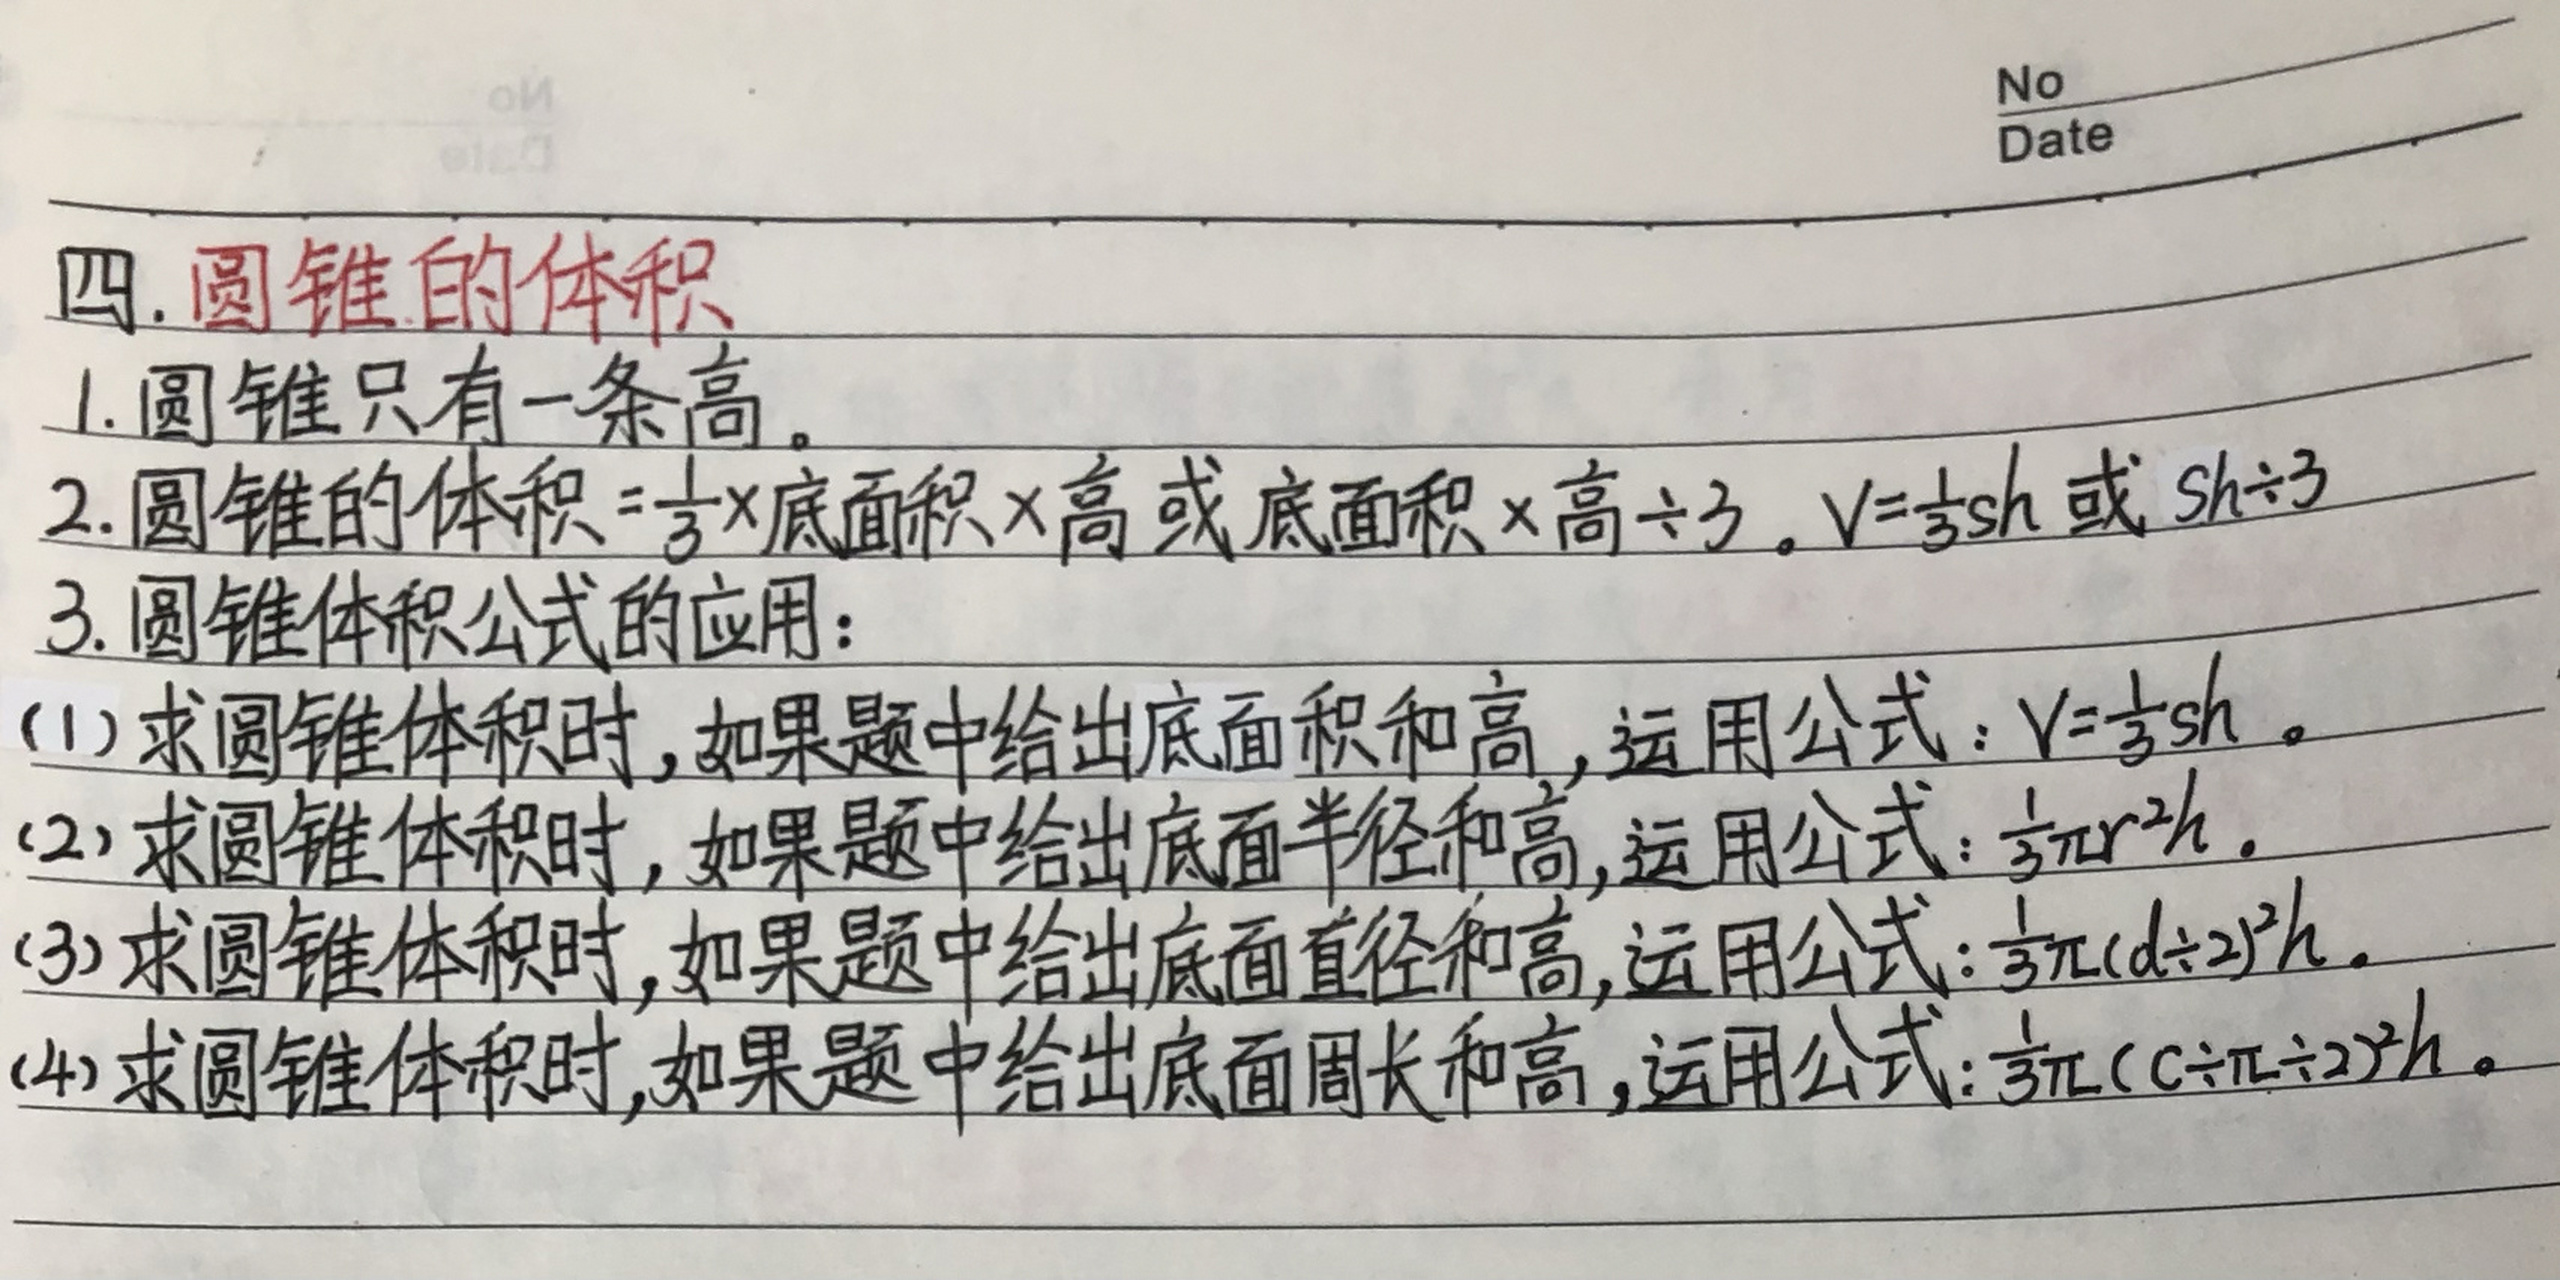 No
Date
四.圆锥的体积
1.圆锥只有一条高。
2.圆锥的体积=⅓×底面积×高或底面积×高÷3。V=⅓sh或Sh÷3
3.圆锥体积公式的应用:
(1)求圆锥体积时,如果题中给出底面积和高,运用公式:V=⅓sh。
(2)求圆锥体积时,如果题中给出底面半径和高,运用公式:⅓πr²h。
(3)求圆锥体积时,如果题中给出底面直径和高,运用公式:⅓π(d÷2)²h。
(4)求圆锥体积时,如果题中给出底面周长和高,运用公式:⅓π(C÷π÷2)²h。